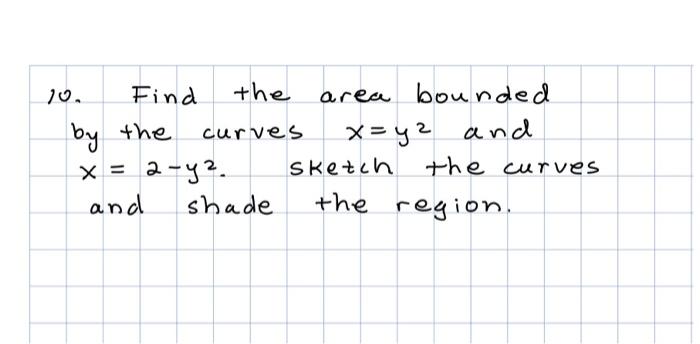 10. Find the area bounded
by the curves x = y² and
x = 2-y². Sketch the curves
and shade the region.